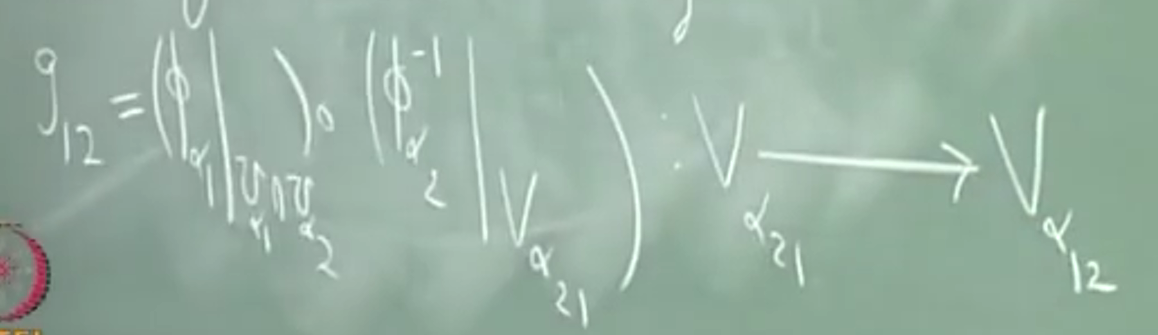 g₁₂ = (ϕ_{α₁}|_{U_{α₁} ∩ U_{α₂}}) ∘ (ϕ⁻¹_{α₂}|_{V_{α₂₁}}) : V_{α₂₁} ⟶ V_{α₁₂}